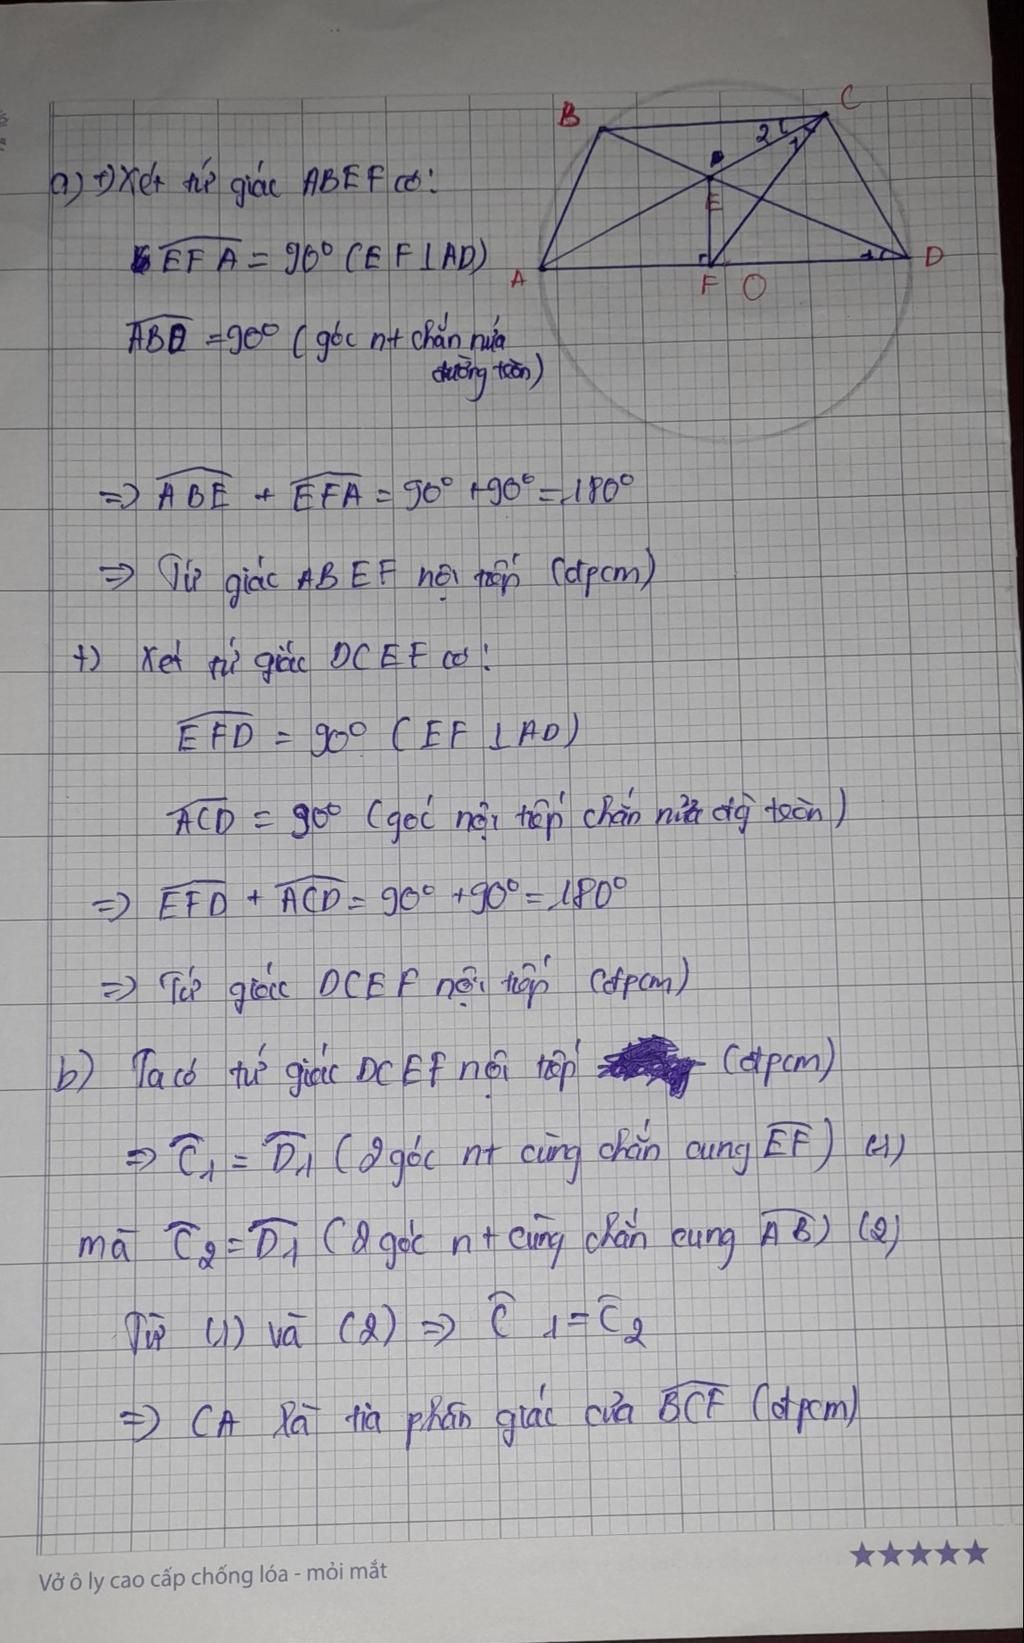 B
C
2
1
E
A
F
O
D
1
a) +) Xét tứ giác ABEF có:
EFA = 90° (EF⊥AD)
ABD = 90° (góc nt chắn nửa
đường tròn)
=> ABE + EFA = 90° + 90° = 180°
=> Tứ giác ABEF nội tiếp (đpcm)
+) Xét tứ giác DCEF có:
EFD = 90° (EF⊥AD)
ACD = 90° (góc nội tiếp chắn nửa đg tròn)
=> EFD + ACD = 90° + 90° = 180°
=> Tứ giác DCEF nội tiếp (đpcm)
b) Ta có tứ giác DCEF nội tiếp (đpcm)
=> C1 = D1 (2 góc nt cùng chắn cung EF) (1)
mà C2 = D1 (2 góc nt cùng chắn cung AB) (2)
Từ (1) và (2) => C1 = C2
=> CA là tia phân giác của BCF (đpcm)
Vở ô ly cao cấp chống lóa - mỏi mắt